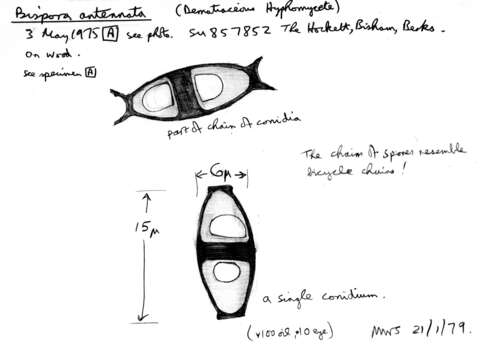 Bispora antennata (Dematiaceous Hyphomycete)
3 May 1975 [A] see photo. SU 857852 The Hockett, Bisham, Berks.
On wood.
See specimen [A]
part of chain of conidia
The chains of spores resemble
bicycle chains!
6µ
15µ
a single conidium.
(x100 oil, x10 eye) MWS 21/1/79.